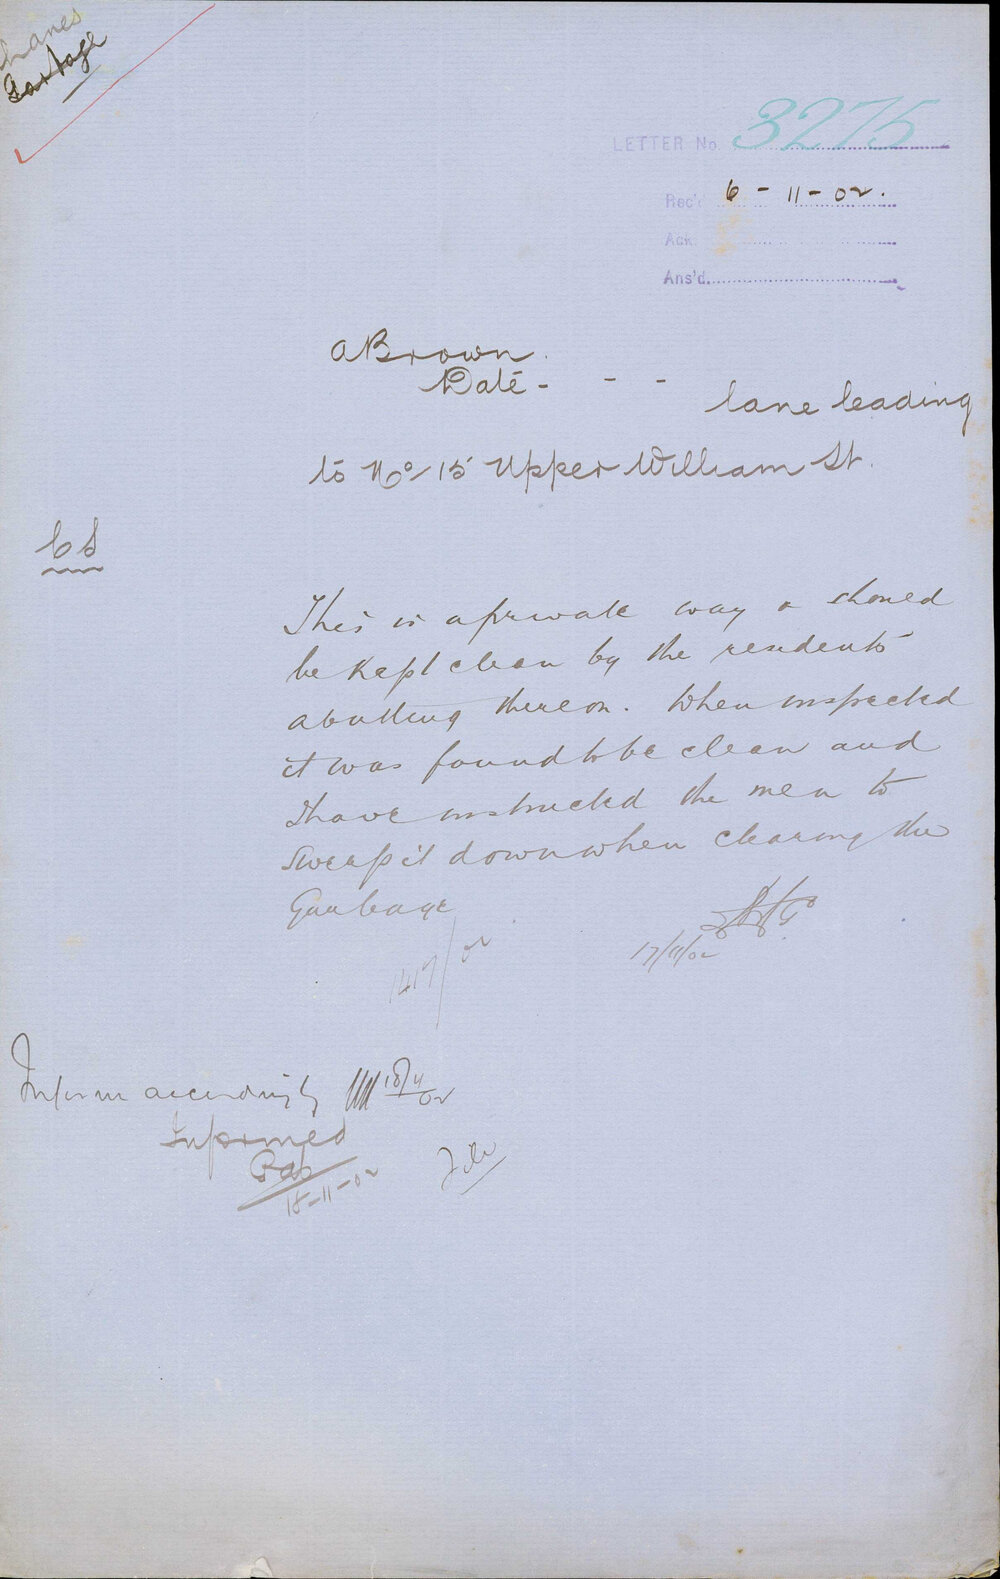 Lanes
Garbage
LETTER No. 3275
Rec'd 6-11-02.
Ack.
Ans'd.
A Brown.
Date - - -
lane leading
to No 15 Upper William St.
CS
This is a private way & should
be kept clean by the residents
abutting thereon. When inspected
it was found to be clean and
I have instructed the men to
sweep it down when clearing the
Garbage
17/11/02
1417/02
Inform accordingly 18/11/02
Informed
18-11-02
File